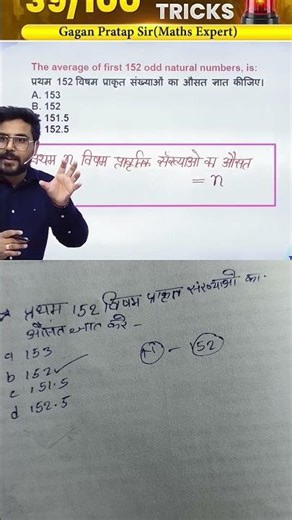 39/100
TRICKS
Gagan Pratap Sir(Maths Expert)
The average of first 152 odd natural numbers, is:
प्रथम 152 विषम प्राकृत संख्याओं का औसत ज्ञात कीजिए।
A. 153
B. 152
151.5
152.5
प्रथम n विषम प्राकृतिक संख्याओं का औसत
= n
प्रथम 152 विषम प्राकृत संख्याओ का
औसत ज्ञात करे -
a 153
b 152 ✓
c 151.5
d 152.5
52